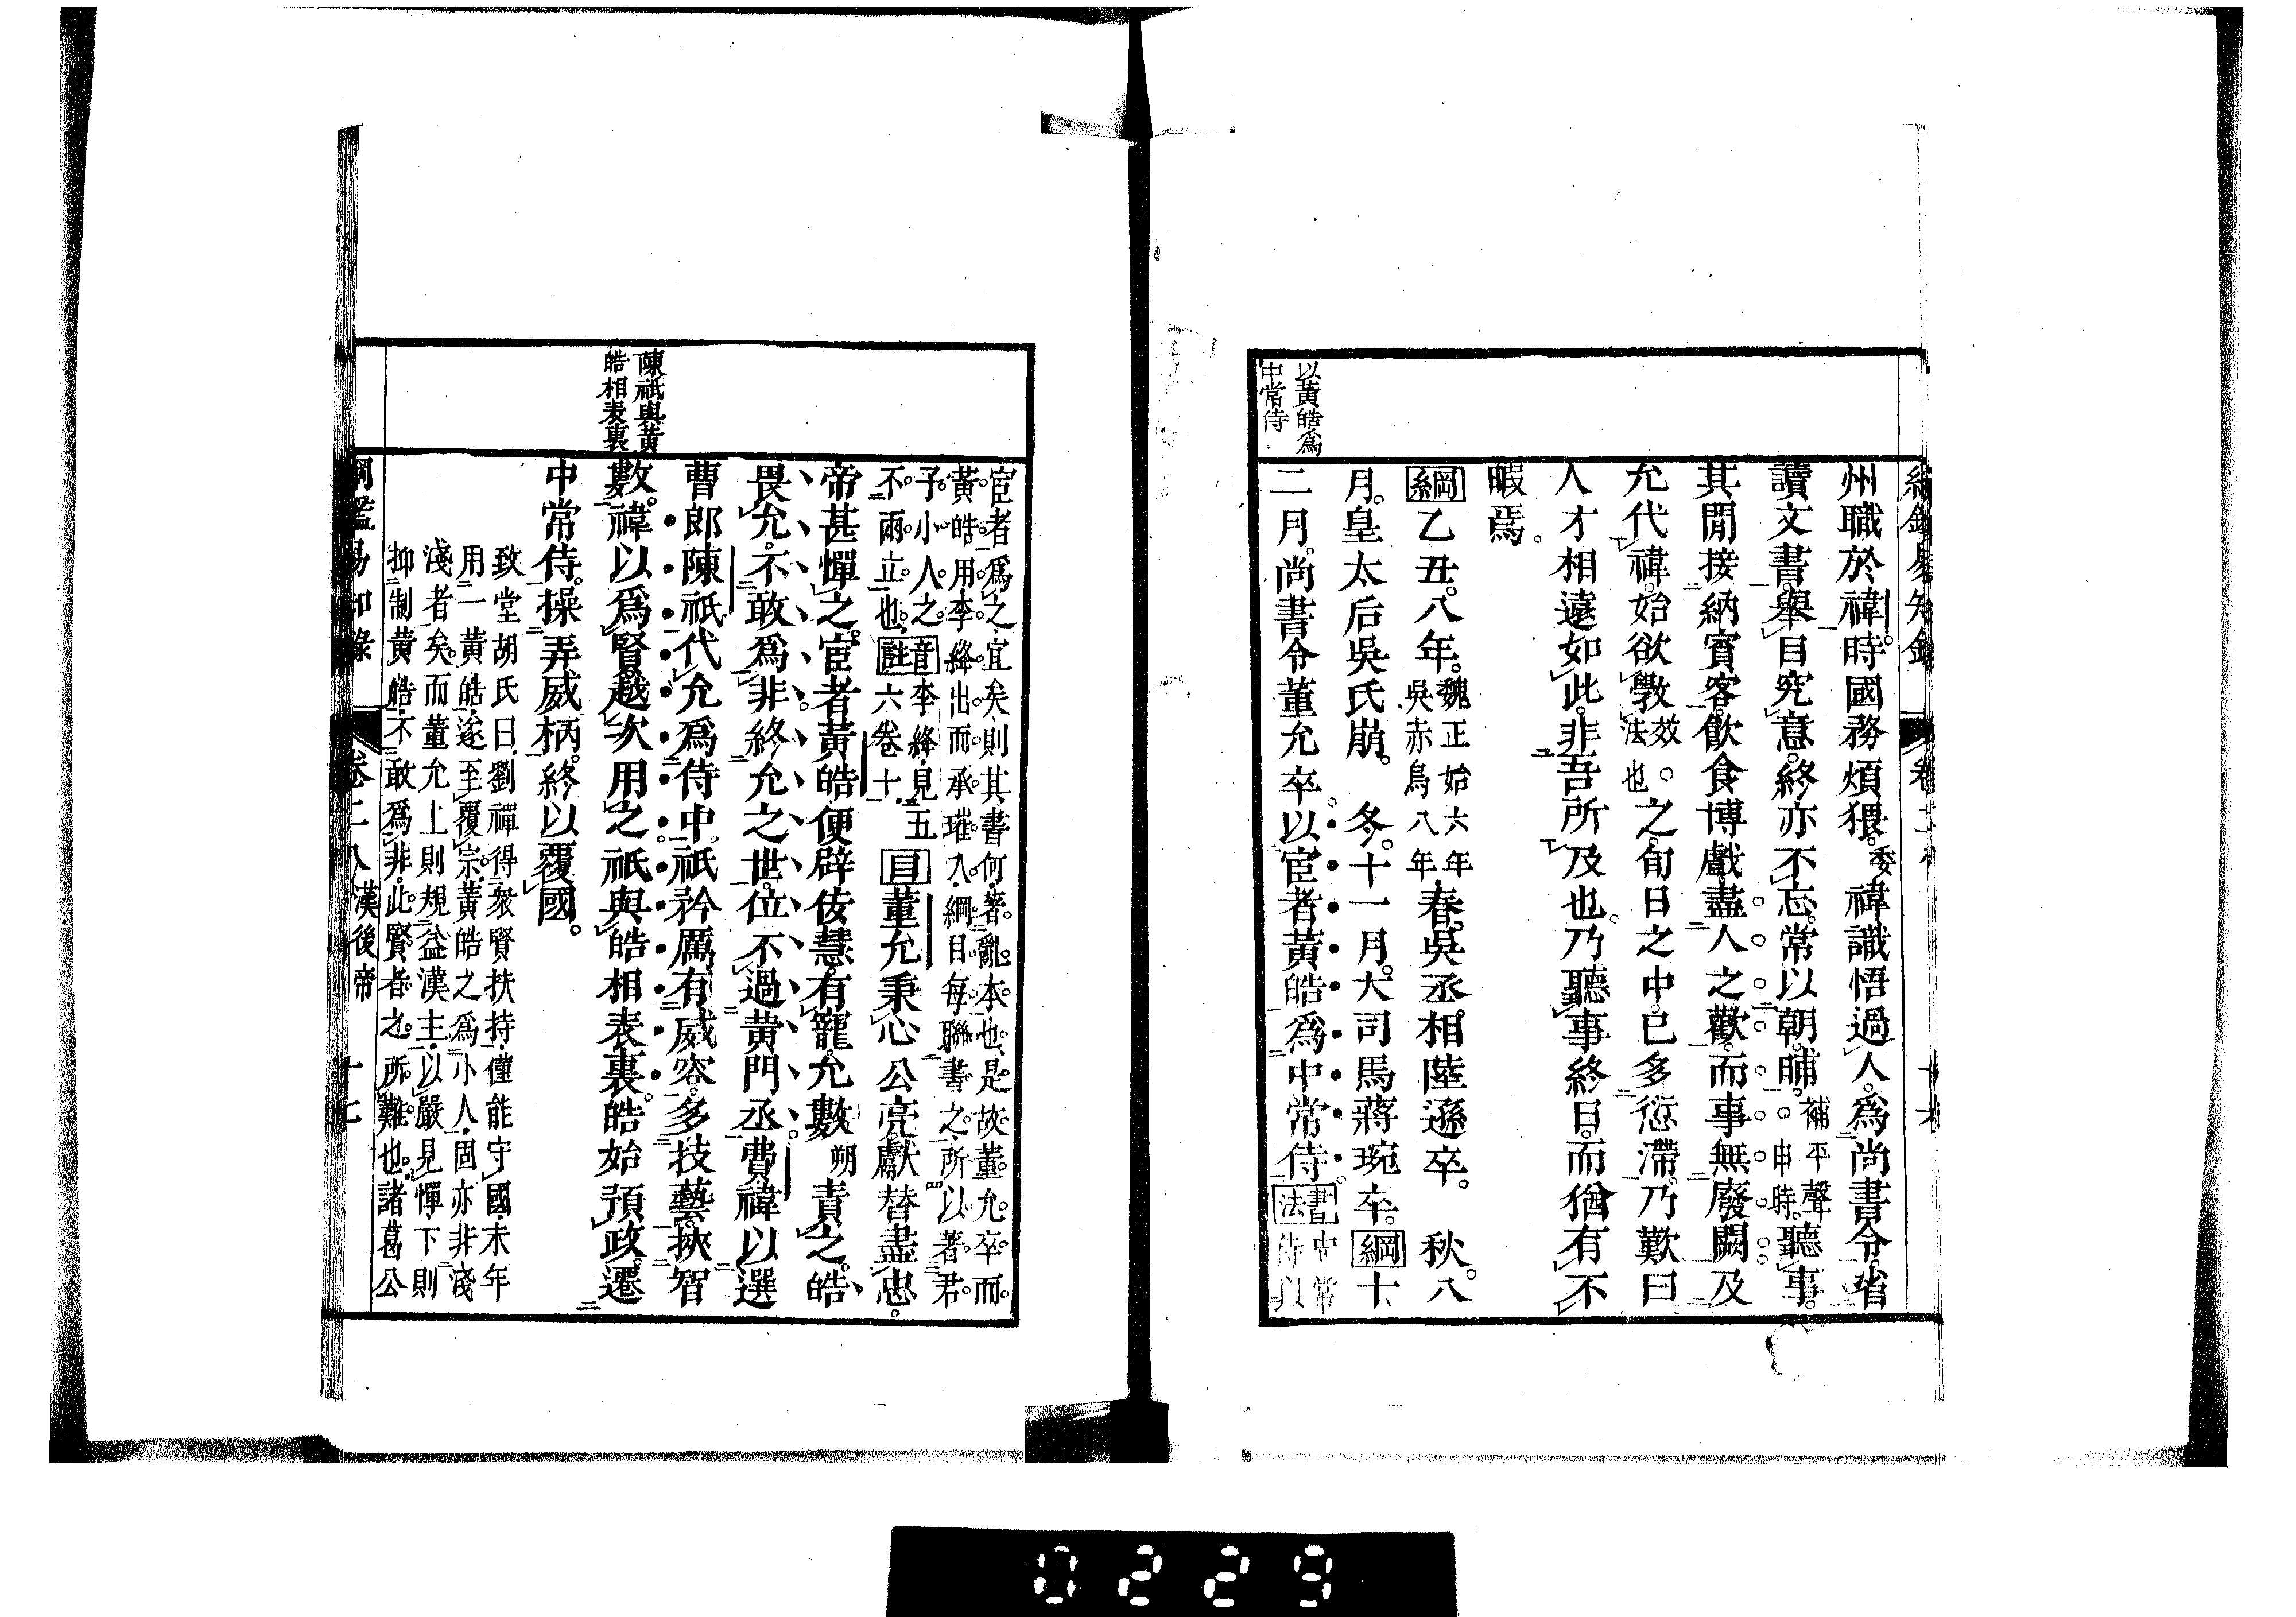 以黃皓爲
中常侍
州職於禕。時國務煩猥。委禕識悟過人。爲尚書令。省
讀文書。舉目究意。終亦不忘。常以朝晡。補平聲。申時。聽事。
其閒接納賓客。飲食博戲。盡人之歡。而事無廢闕。及
允代禕。始欲斆效。法也之。旬日之中。已多愆滯。乃歎曰
人才相遠如此。非吾所及也。乃聽事終日。而猶有不
暇焉。
綱乙丑。八年。魏正始六年吳赤烏八年。春。吳丞相陸遜卒。 秋。八
月。皇太后吳氏崩。 冬。十一月。大司馬蔣琬卒。綱十
二月。尚書令董允卒。以宦者黃皓爲中常侍。書法中常侍以
陳祗與黃
皓相表裏
宦者爲之。宜矣。則其書何。著亂本也。是故董允卒而
黃皓用。李絳出而承璀入。綱目每聯書之。所以著君
子小人之
不兩立也。音李絳。見五
註六卷十。目董允秉心公亮。獻替盡忠。
帝甚憚之。宦者黃皓便辟佞慧。有寵。允數朔責之。皓
畏允。不敢爲非。終允之世。位不過黃門丞。費禕以選
曹郎陳祗代允爲侍中。祗矜厲有威容。多技藝。挾智
數。禕以爲賢。越次用之。祗與皓相表裏。皓始預政。遷
中常侍。操弄威柄。終以覆國。
致堂胡氏曰。劉禪得衆賢扶持。僅能守國。末年
用一黃皓。遂至覆宗。黃皓之爲小人。固亦非淺
淺者矣。而董允上則規益漢主。以嚴見憚。下則
抑制黃皓。不敢爲非。此賢者之所難也。諸葛公
綱鑑易知錄 卷二八 漢後帝 十七